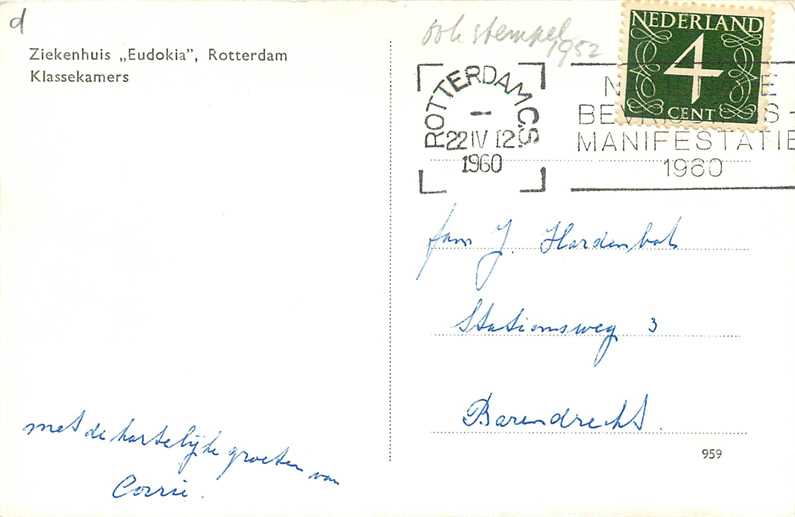 d
Ziekenhuis „Eudokia”, Rotterdam
Klassekamers
stempel
1952
NEDERLAND
4
CENT
ROTTERDAM C.S
22 IV 12
1960
MANIFESTATIE
1960
fam J. Hardenbol
Stationsweg 3
Barendrecht.
959
met de hartelijke groeten van
Corrie.